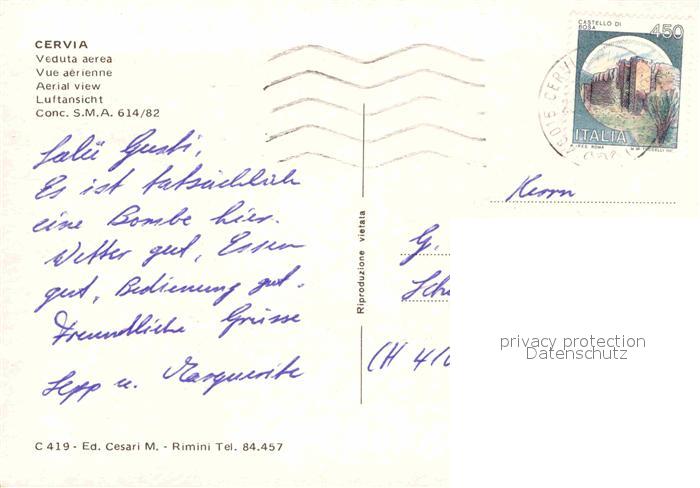 CERVIA
Veduta aerea
Vue aérienne
Aerial view
Luftansicht
Conc. S.M.A. 614/82
Salü Gusti,
Es ist tatsächlich
eine Bombe hier.
Wetter gut, Essen
gut, Bedienung gut.
Freundliche Grüsse
Sepp u. Marguerite
C 419 - Ed. Cesari M. - Rimini Tel. 84.457
Riproduzione vietata
CASTELLO DI
BOSA
450
ITALIA
CERVI
Herrn
G.
Sch
(H 41
privacy protection
Datenschutz